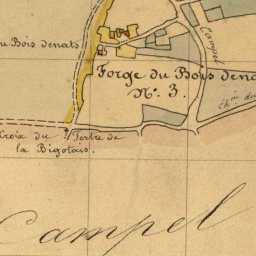 u Bois denats
Campel
Forge du Bois dena
N.º 3.
ch.in du
Croix du Tertre de
la Bigotais.
Campel